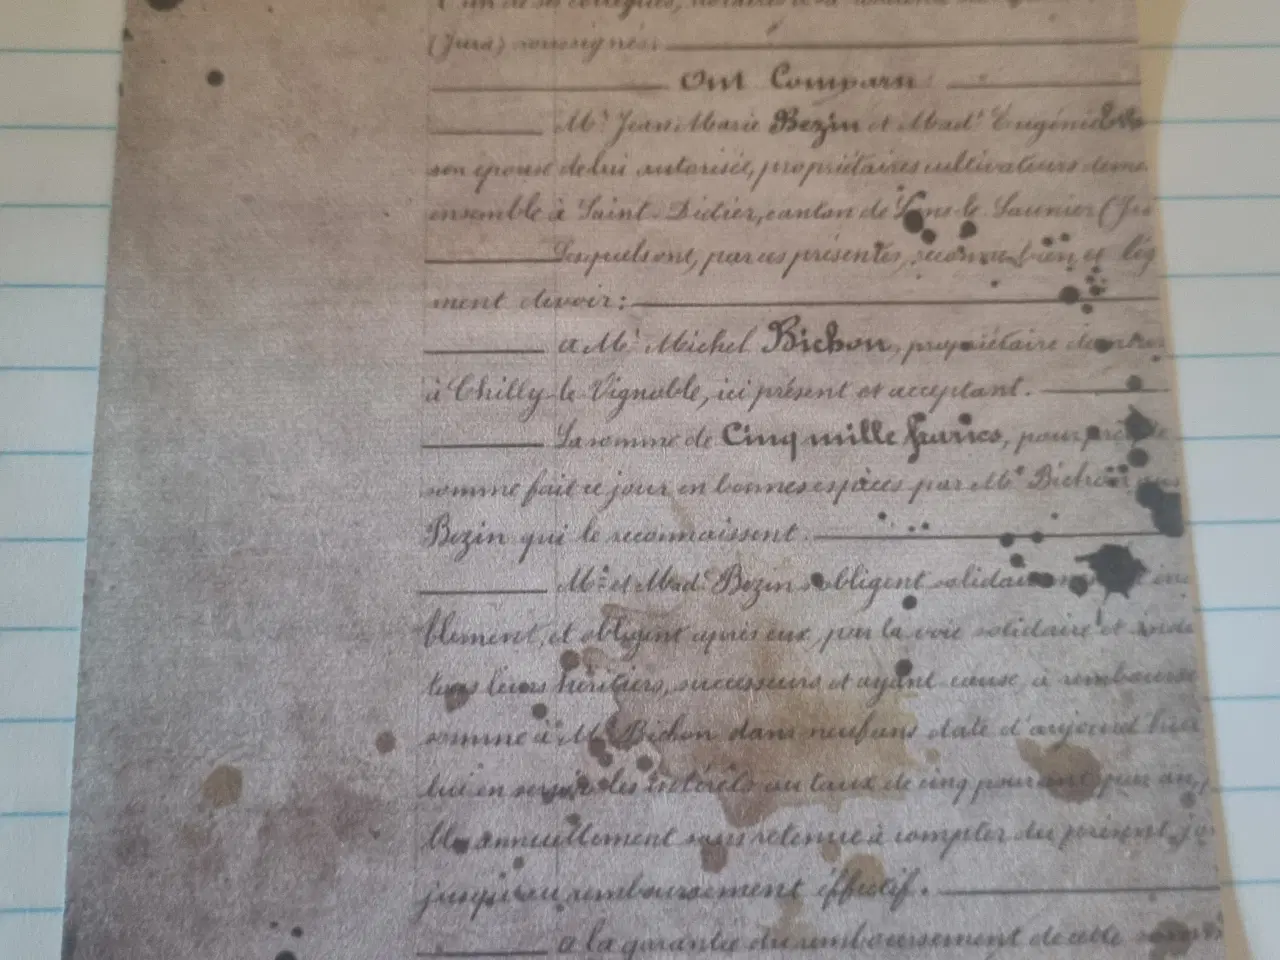 l'un de ses collègues, notaires à la résidence
(Jura) soussignés:
Ont Comparu:
Mr. Jean Marie Bezin et Made. Eugénie
son épouse de lui autorisée, propriétaires cultivateurs deme
ensemble à Saint-Didier, canton de Lons-le-Saunier (Ju
Lesquels ont, par ces présentes, reconnu bien et lég
ment devoir:
a Mr. Michel Bichon, propriétaire
à Chilly-le-Vignoble, ici présent et acceptant.
La somme de Cinq mille francs, pour prêt de
somme fait ce jour en bonnes espèces par Mr. Bichon aux
Bezin qui le reconnaissent.
Mr. et Made. Bezin s'obligent solidairement et ind
blement, et obligent après eux, par la voie solidaire et indi
tous leurs héritiers, successeurs et ayant cause à rembourse
somme à Mr. Bichon dans neuf ans date d'aujourd'hui
lui en servir les intérêts au taux de cinq pour cent par an, p
ble annuellement sans retenue à compter du présent jo
jusqu'au remboursement éffectif.
a la garantie du remboursement de cette somme